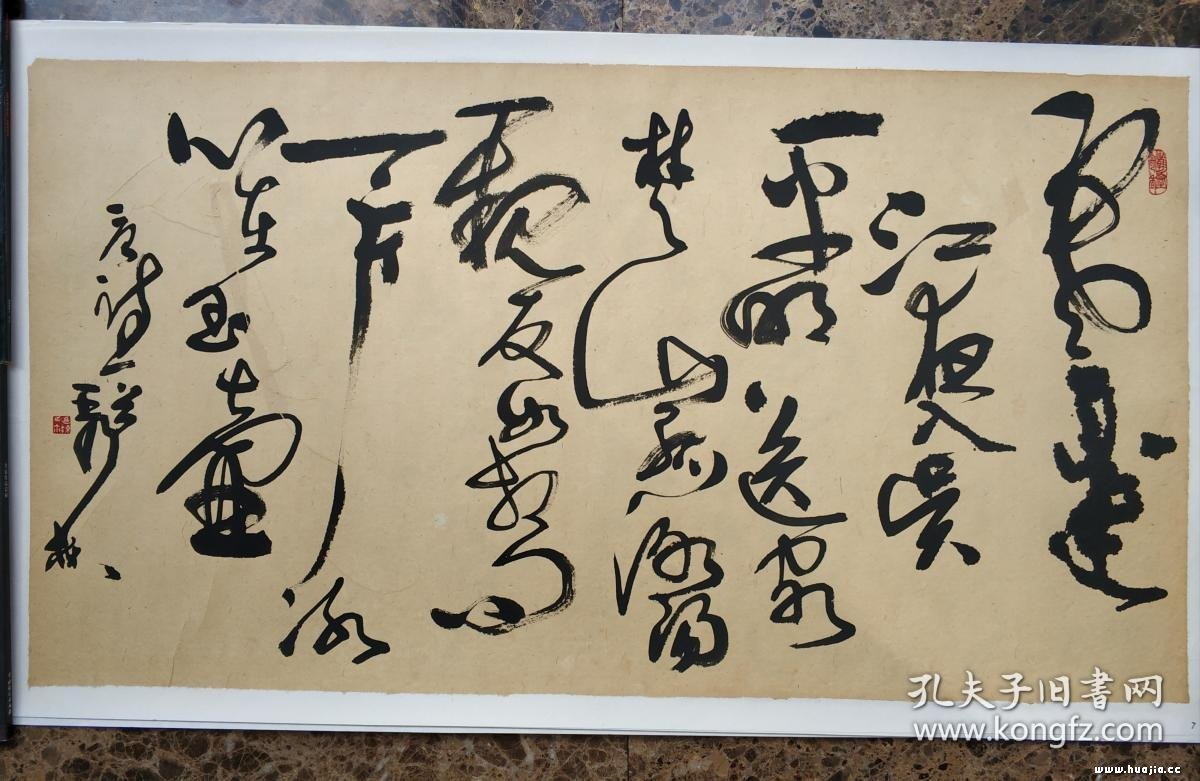 寒雨連
江夜入吳
平明送客
楚山孤洛陽
親友如相問
一片冰
心在玉壺
唐詩一首
孔夫子旧书网
www.kongfz.com
7
www.huajia.cc